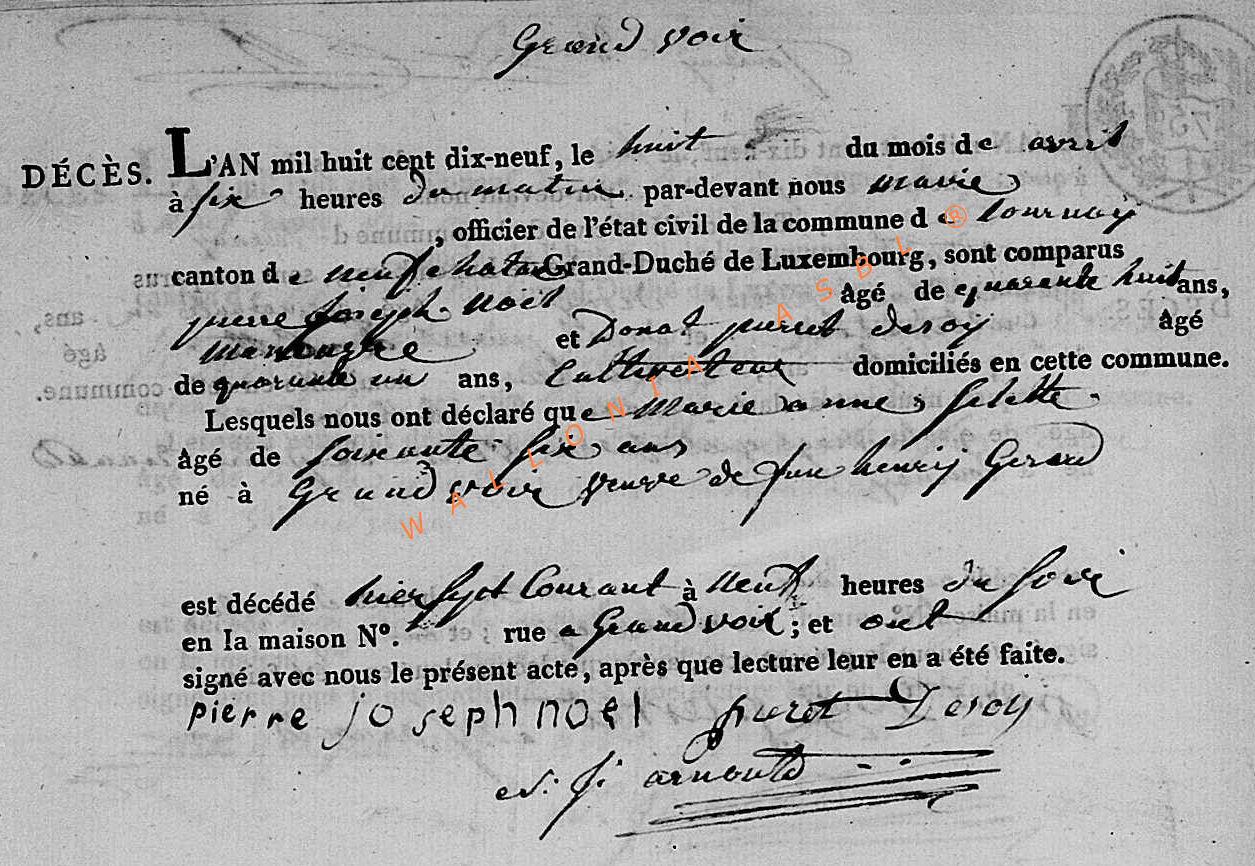 Grand voir
DÉCÈS. L'AN mil huit cent dix-neuf, le huit du mois de avril
à six heures du matin par-devant nous
, officier de l'état civil de la commune de tournay
canton de neufchatau Grand-Duché de Luxembourg, sont comparus
pierre Joseph Noël âgé de quarante huit ans,
et Donat puret desoÿ âgé
de quarante un ans, Cultivateur domiciliés en cette commune.
Lesquels nous ont déclaré que Marie anne
âgé de soixante six ans
né à Grand voir veuve de feu henrÿ Gerard
est décédé hier sept Courant à neuf heures du soir
en la maison Nº. rue a Grand voir ; et ont
signé avec nous le présent acte, après que lecture leur en a été faite.
pierre joseph noel puret Desoÿ
arnould
WALLONIA ASBL ®